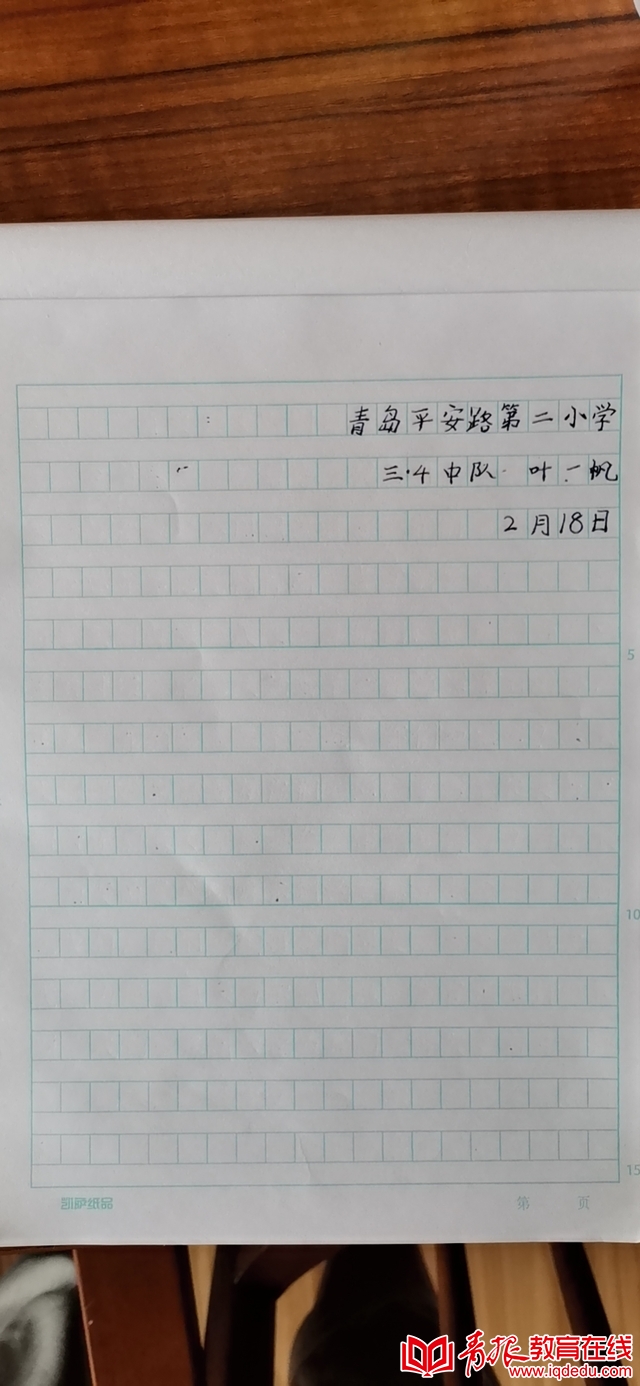 青岛平安路第二小学
三·4中队 叶一帆
2月18日
5
10
15
凯萨纸品
第 页
青报教育在线
www.iqdedu.com